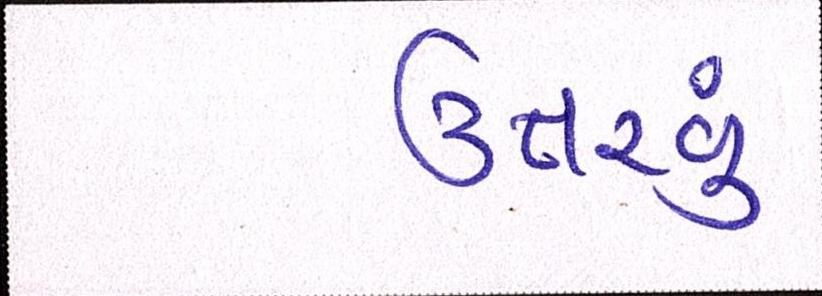 ઉતરવું